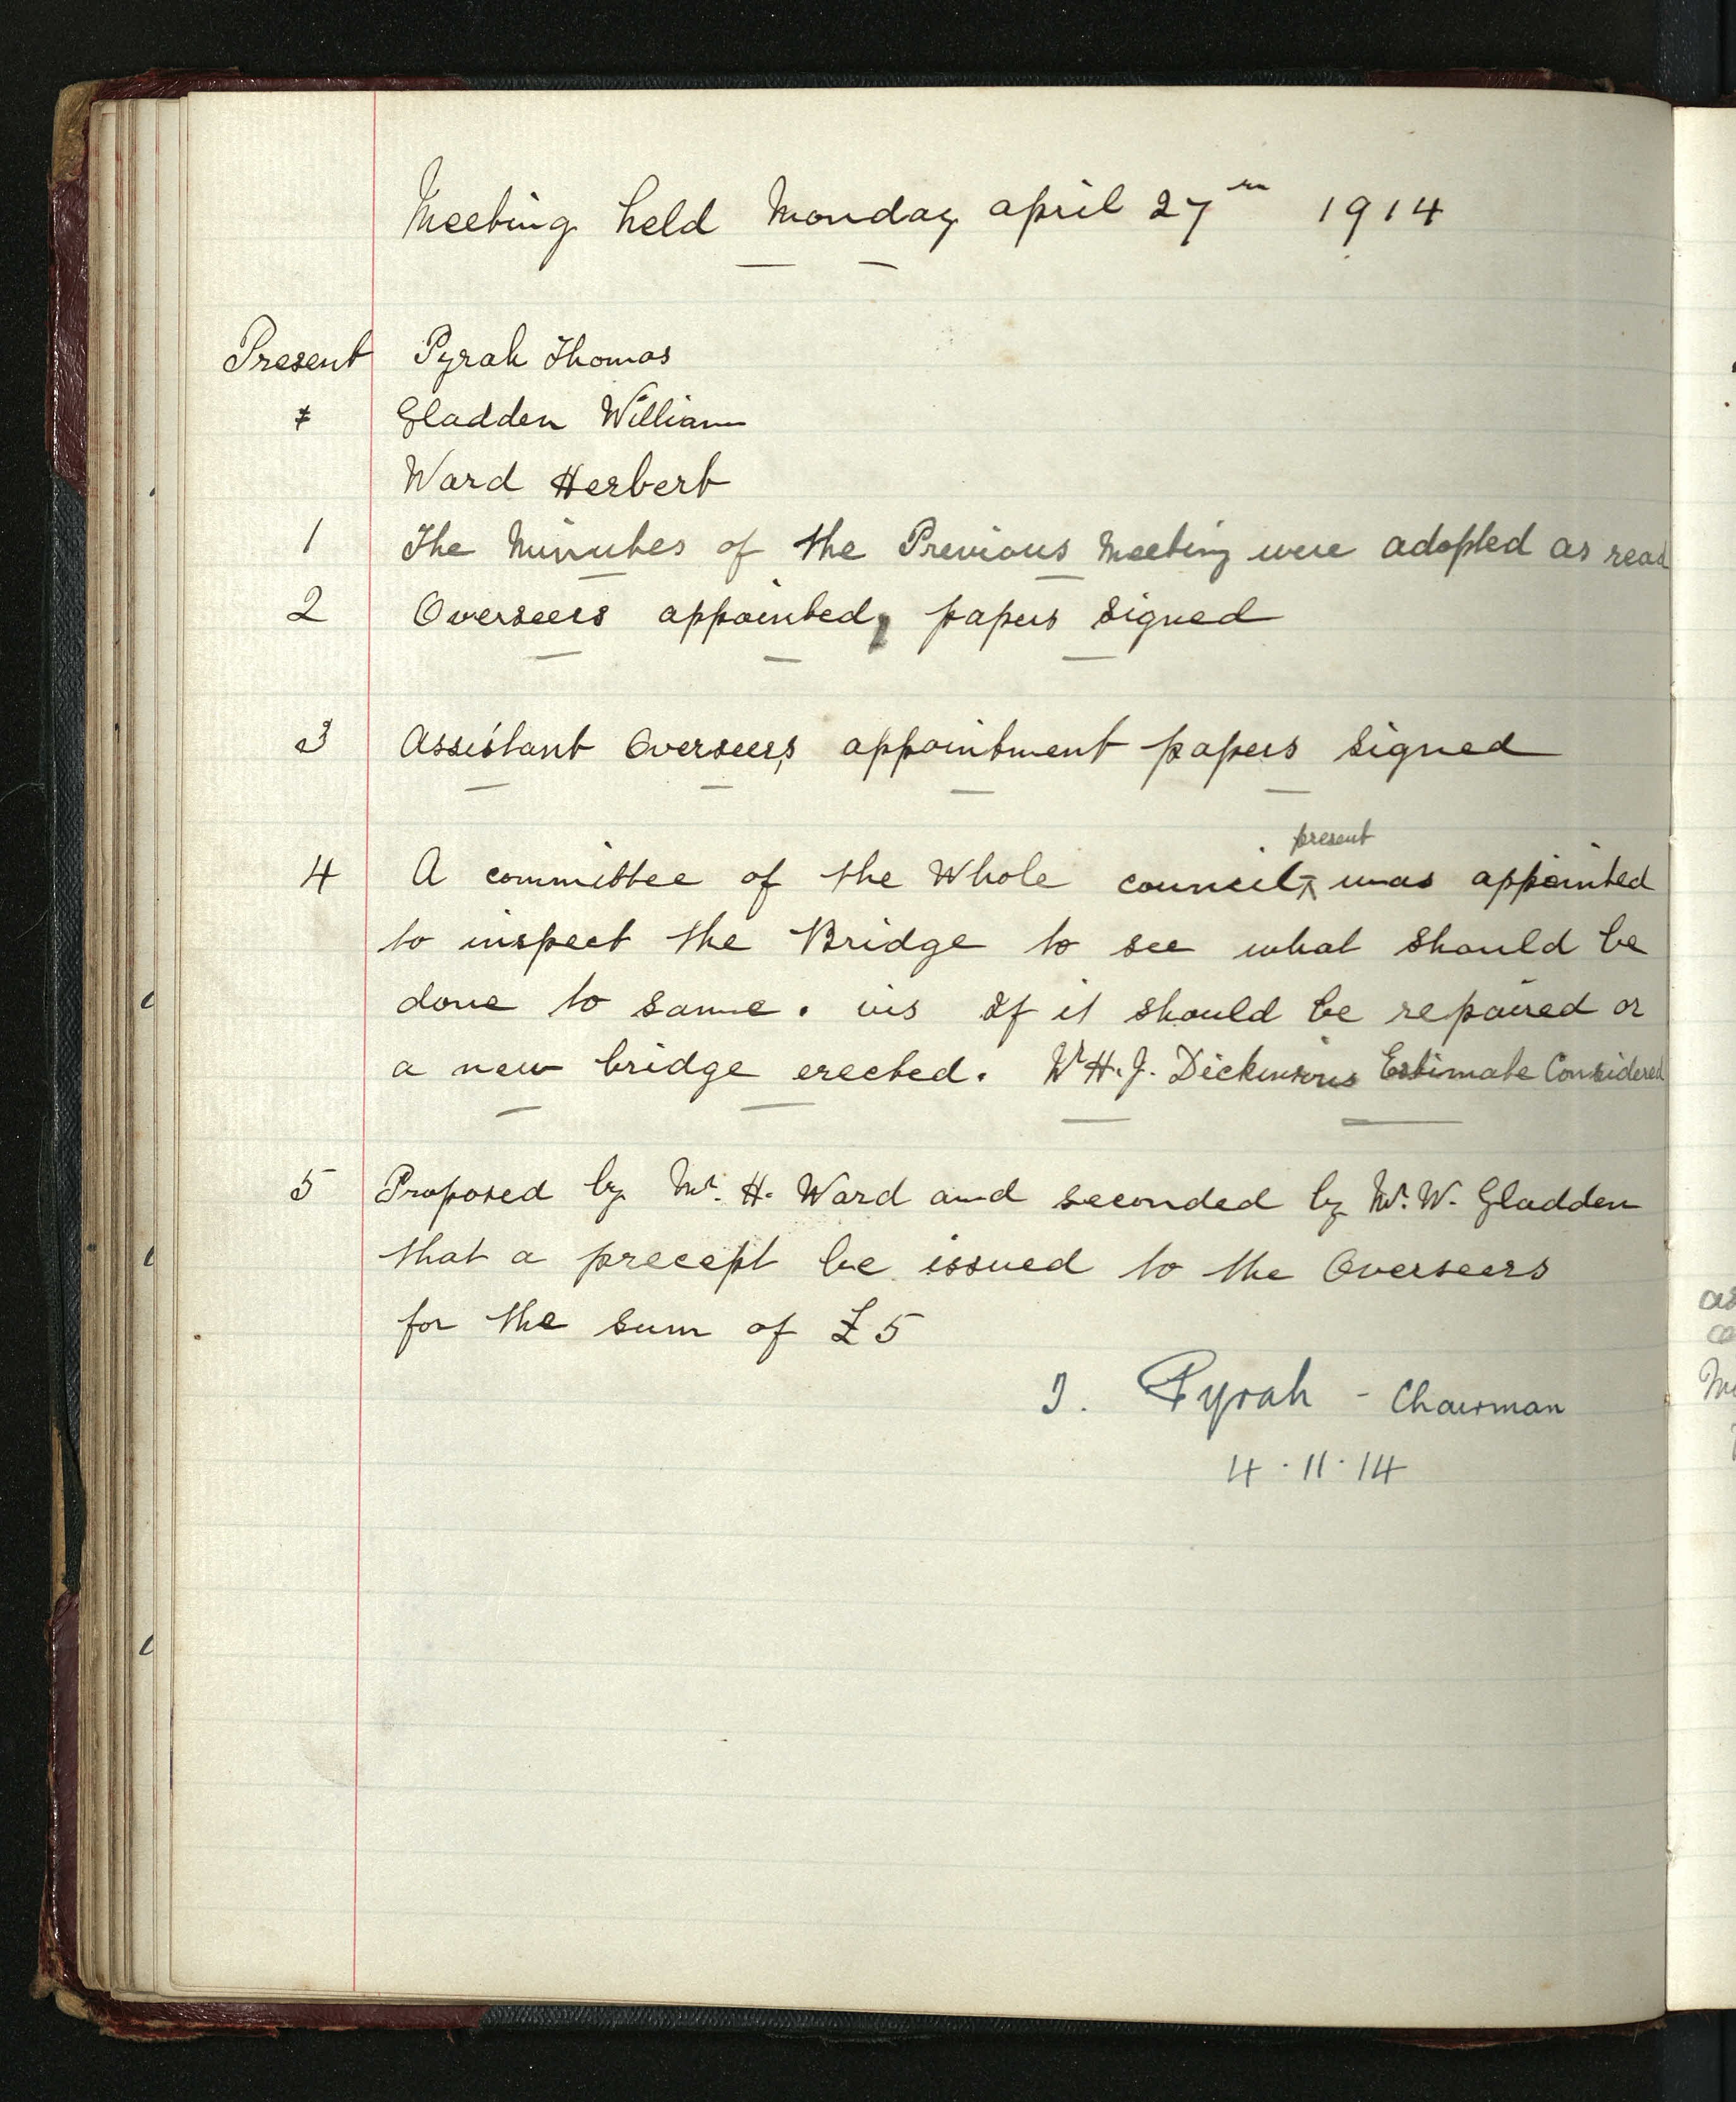 Meeting held Monday april 27th 1914
Present Pyrah Thomas
Gladden William
Ward Herbert
1 The Minutes of the Previous Meeting were adopted as read
2 Overseers appointed, papers signed
3 Assistant Overseers appointment papers signed
present
4 A committee of the Whole council was appointed
to inspect the Bridge to see what should be
done to same. vis If it should be repaired or
a new bridge erected. H. J. Dickinsons Estimate Considered
5 Proposed by Mr. H. Ward and seconded by Mr. W. Gladden
that a precept be issued to the Overseers
for the sum of £5
T. Pyrah - Chairman
4.11.14